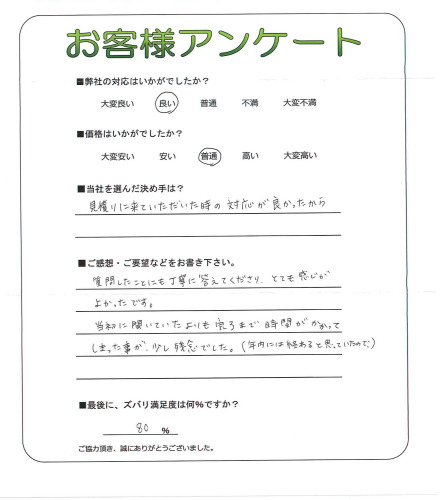 お客様アンケート
■弊社の対応はいかがでしたか？
大変良い 良い 普通 不満 大変不満
■価格はいかがでしたか？
大変安い 安い 普通 高い 大変高い
■当社を選んだ決め手は？
見積りに来ていただいた時の対応が良かったから
■ご感想・ご要望などをお書き下さい。
質問したことにも丁寧に答えてくださり、とても感じが
よかったです。
当初に聞いていたよりも戻るまで時間がかかって
しまった事が、少し残念でした。(年内には終わると思っていたので)
■最後に、ズバリ満足度は何%ですか？
80 %
ご協力頂き、誠にありがとうございました。